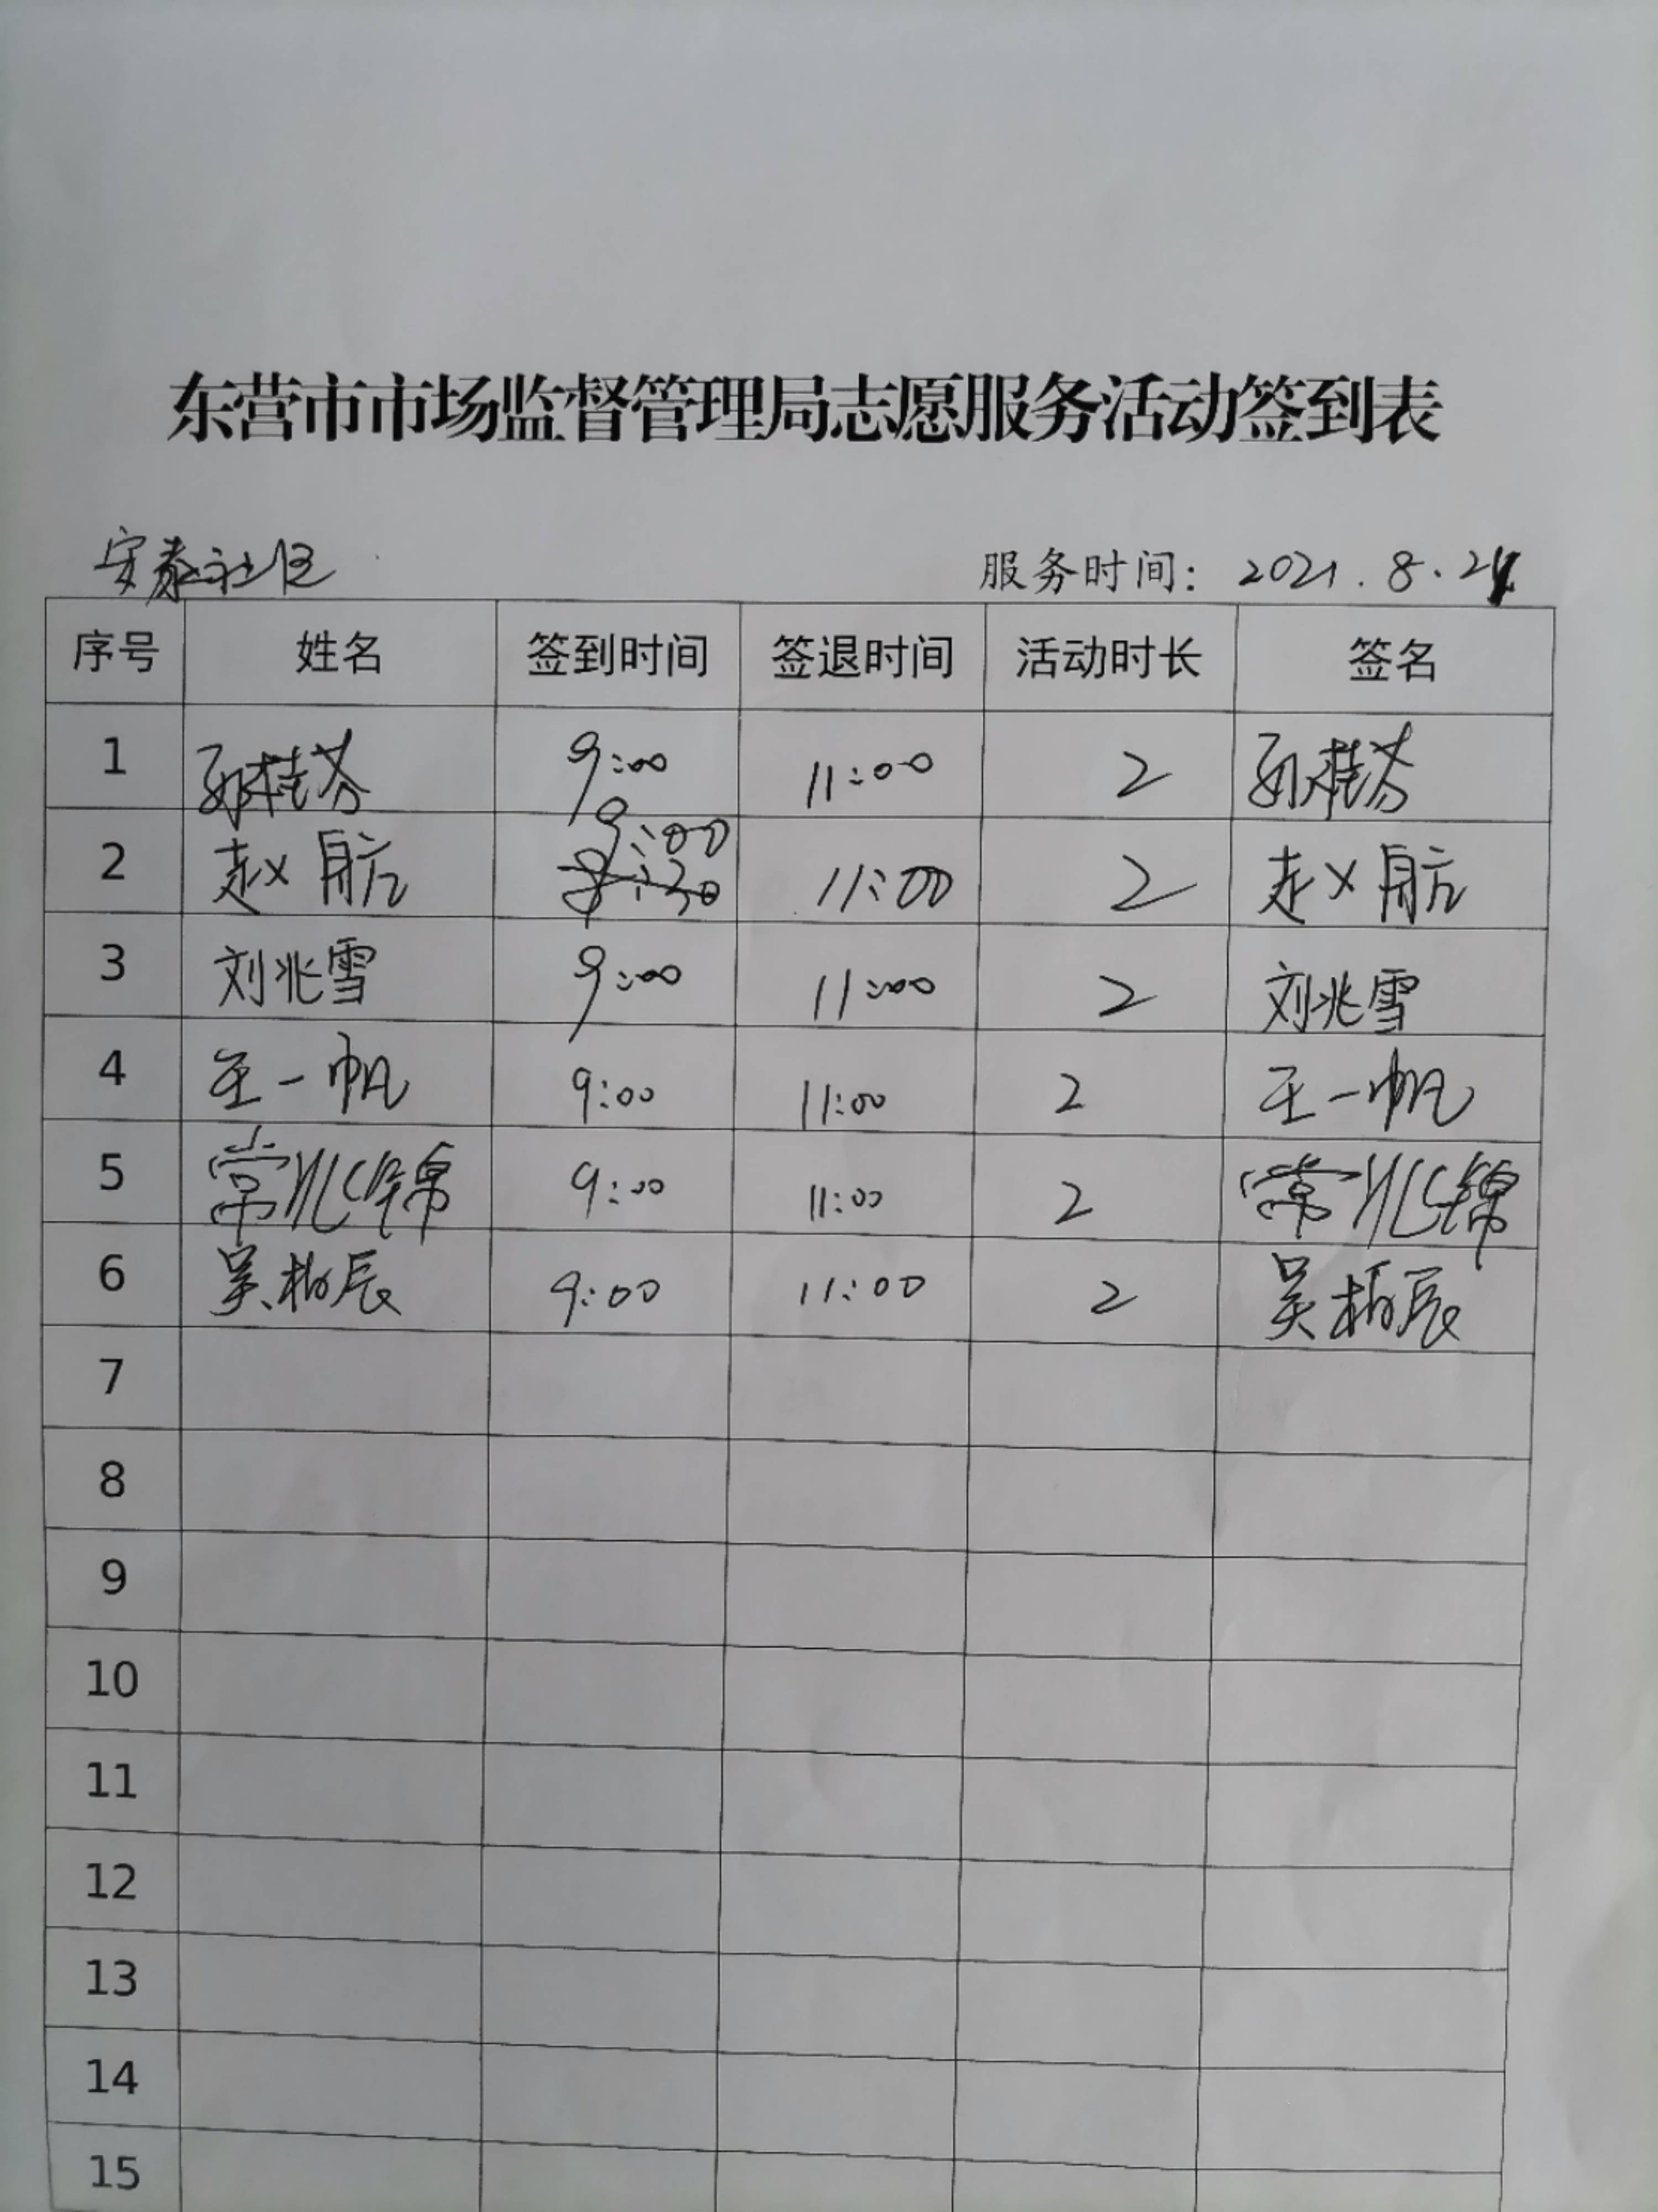 东营市市场监督管理局志愿服务活动签到表
安泰社区 服务时间: 2021.8.2
序号 姓名 签到时间 签退时间 活动时长 签名
1 9:00 11:00 2
2 赵航 9:00 8:30 11:00 2 赵航
3 刘兆雪 9:00 11:00 2 刘兆雪
4 王一帆 9:00 11:00 2 王一帆
5 常兆锦 9:00 11:00 2 常兆锦
6 吴柳辰 9:00 11:00 2 吴柳辰
7
8
9
10
11
12
13
14
15